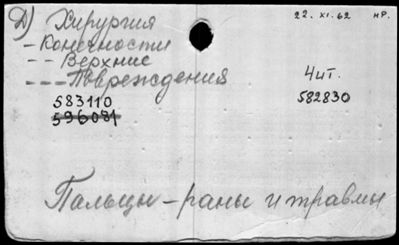 Д) Хирургия
22. XI. 62 нр.
- Конечности
-- Верхние
---- Повреждения
Чит.
583110
582830
596081
Пальцы - раны и травмы